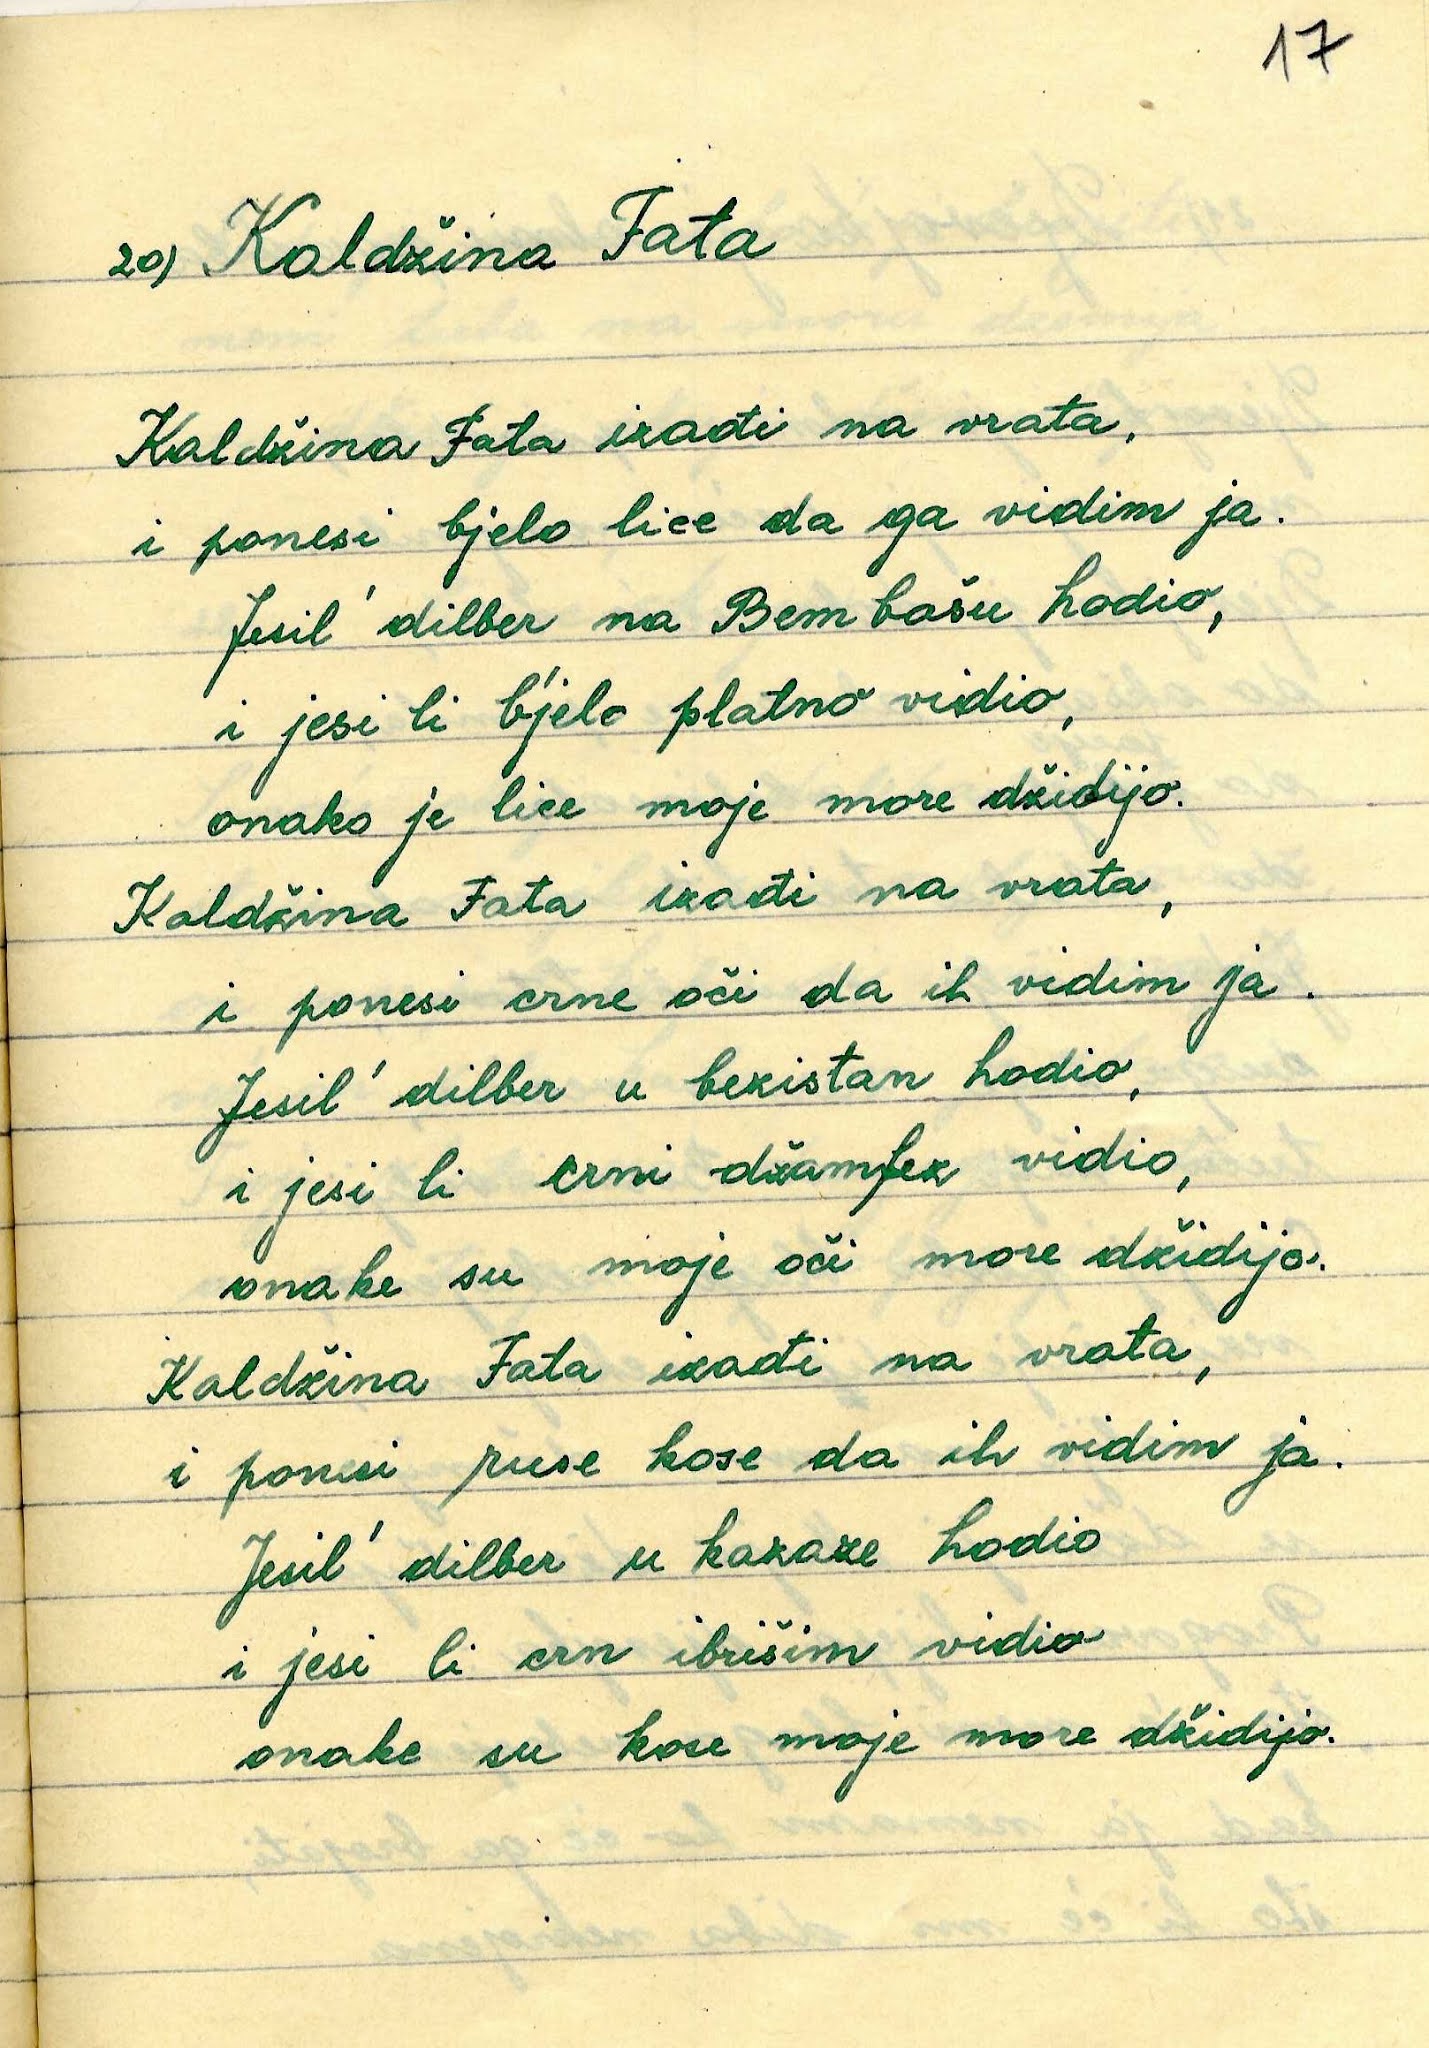 17
20) Kaldžina Fata
Kaldžina Fata izađi na vrata,
i ponesi bjelo lice da ga vidim ja.
Jesil' dilber na Bembašu hodio,
i jesi li b'jelo platno vidio,
onako je lice moje more džidijo.
Kaldžina Fata izađi na vrata,
i ponesi crne oči da ih vidim ja.
Jesil' dilber u bezistan hodio,
i jesi li crni džamfez vidio,
onake su moje oči more džidijo.
Kaldžina Fata izađi na vrata,
i ponesi ruse kose da ih vidim ja.
Jesil' dilber u kazaze hodio
i jesi li crn ibrišim vidio
onake su kose moje more džidijo.